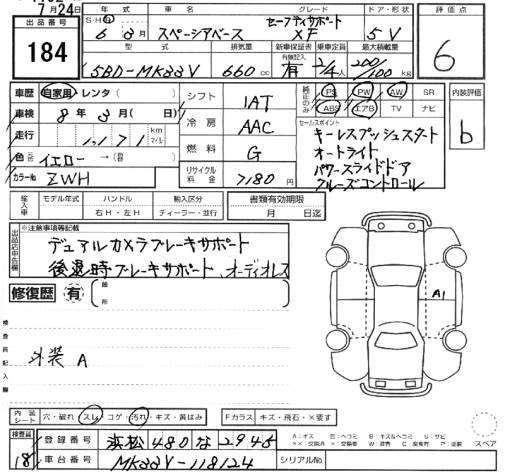 7月24日
出品番号 184
年式 車名 グレード ドア・形状 評価点
S・H・R 6年3月 スペーシアベース セーフティサポート XF 5V 6
型式 排気量 新車保証書 乗車定員 最大積載量
5BD-MK33V 660cc 有無記入 有 2/4人 200/100kg
車歴 自家用・レンタ( )
車検 8年3月( 日)
走行 1,171 km マイル
色 イエロー→(色 )
カラーNo ZWH
シフト IAT
冷房 AAC
燃料 G
リサイクル料金 7180円
純正のみ PS PW AW SR
ABS エアB TV ナビ
内装評価 b
セールスポイント
キーレスプッシュスタート
オートライト
パワースライドドア
クルーズコントロール
輸入車 モデル年式 ハンドル 輸入区分 書類有効期限
年 右H・左H ディーラー・並行 月 日迄
出品店申告欄 ※注意事項等記載
デュアルカメラブレーキサポート
後退時ブレーキサポート、オーディオレス
修復歴 有 箇所
検査員記入欄
外装 A
A1
内装シート 穴・破れ・スレ・コゲ・汚れ・キズ・黄ばみ Fガラス キズ・飛石・×要す
検査員 18
登録番号 浜松480な2945
車台番号 MK33V-118124 シリアルNo.
A:キズ E:ヘコミ B:キズ&ヘコミ S:サビ
スペア